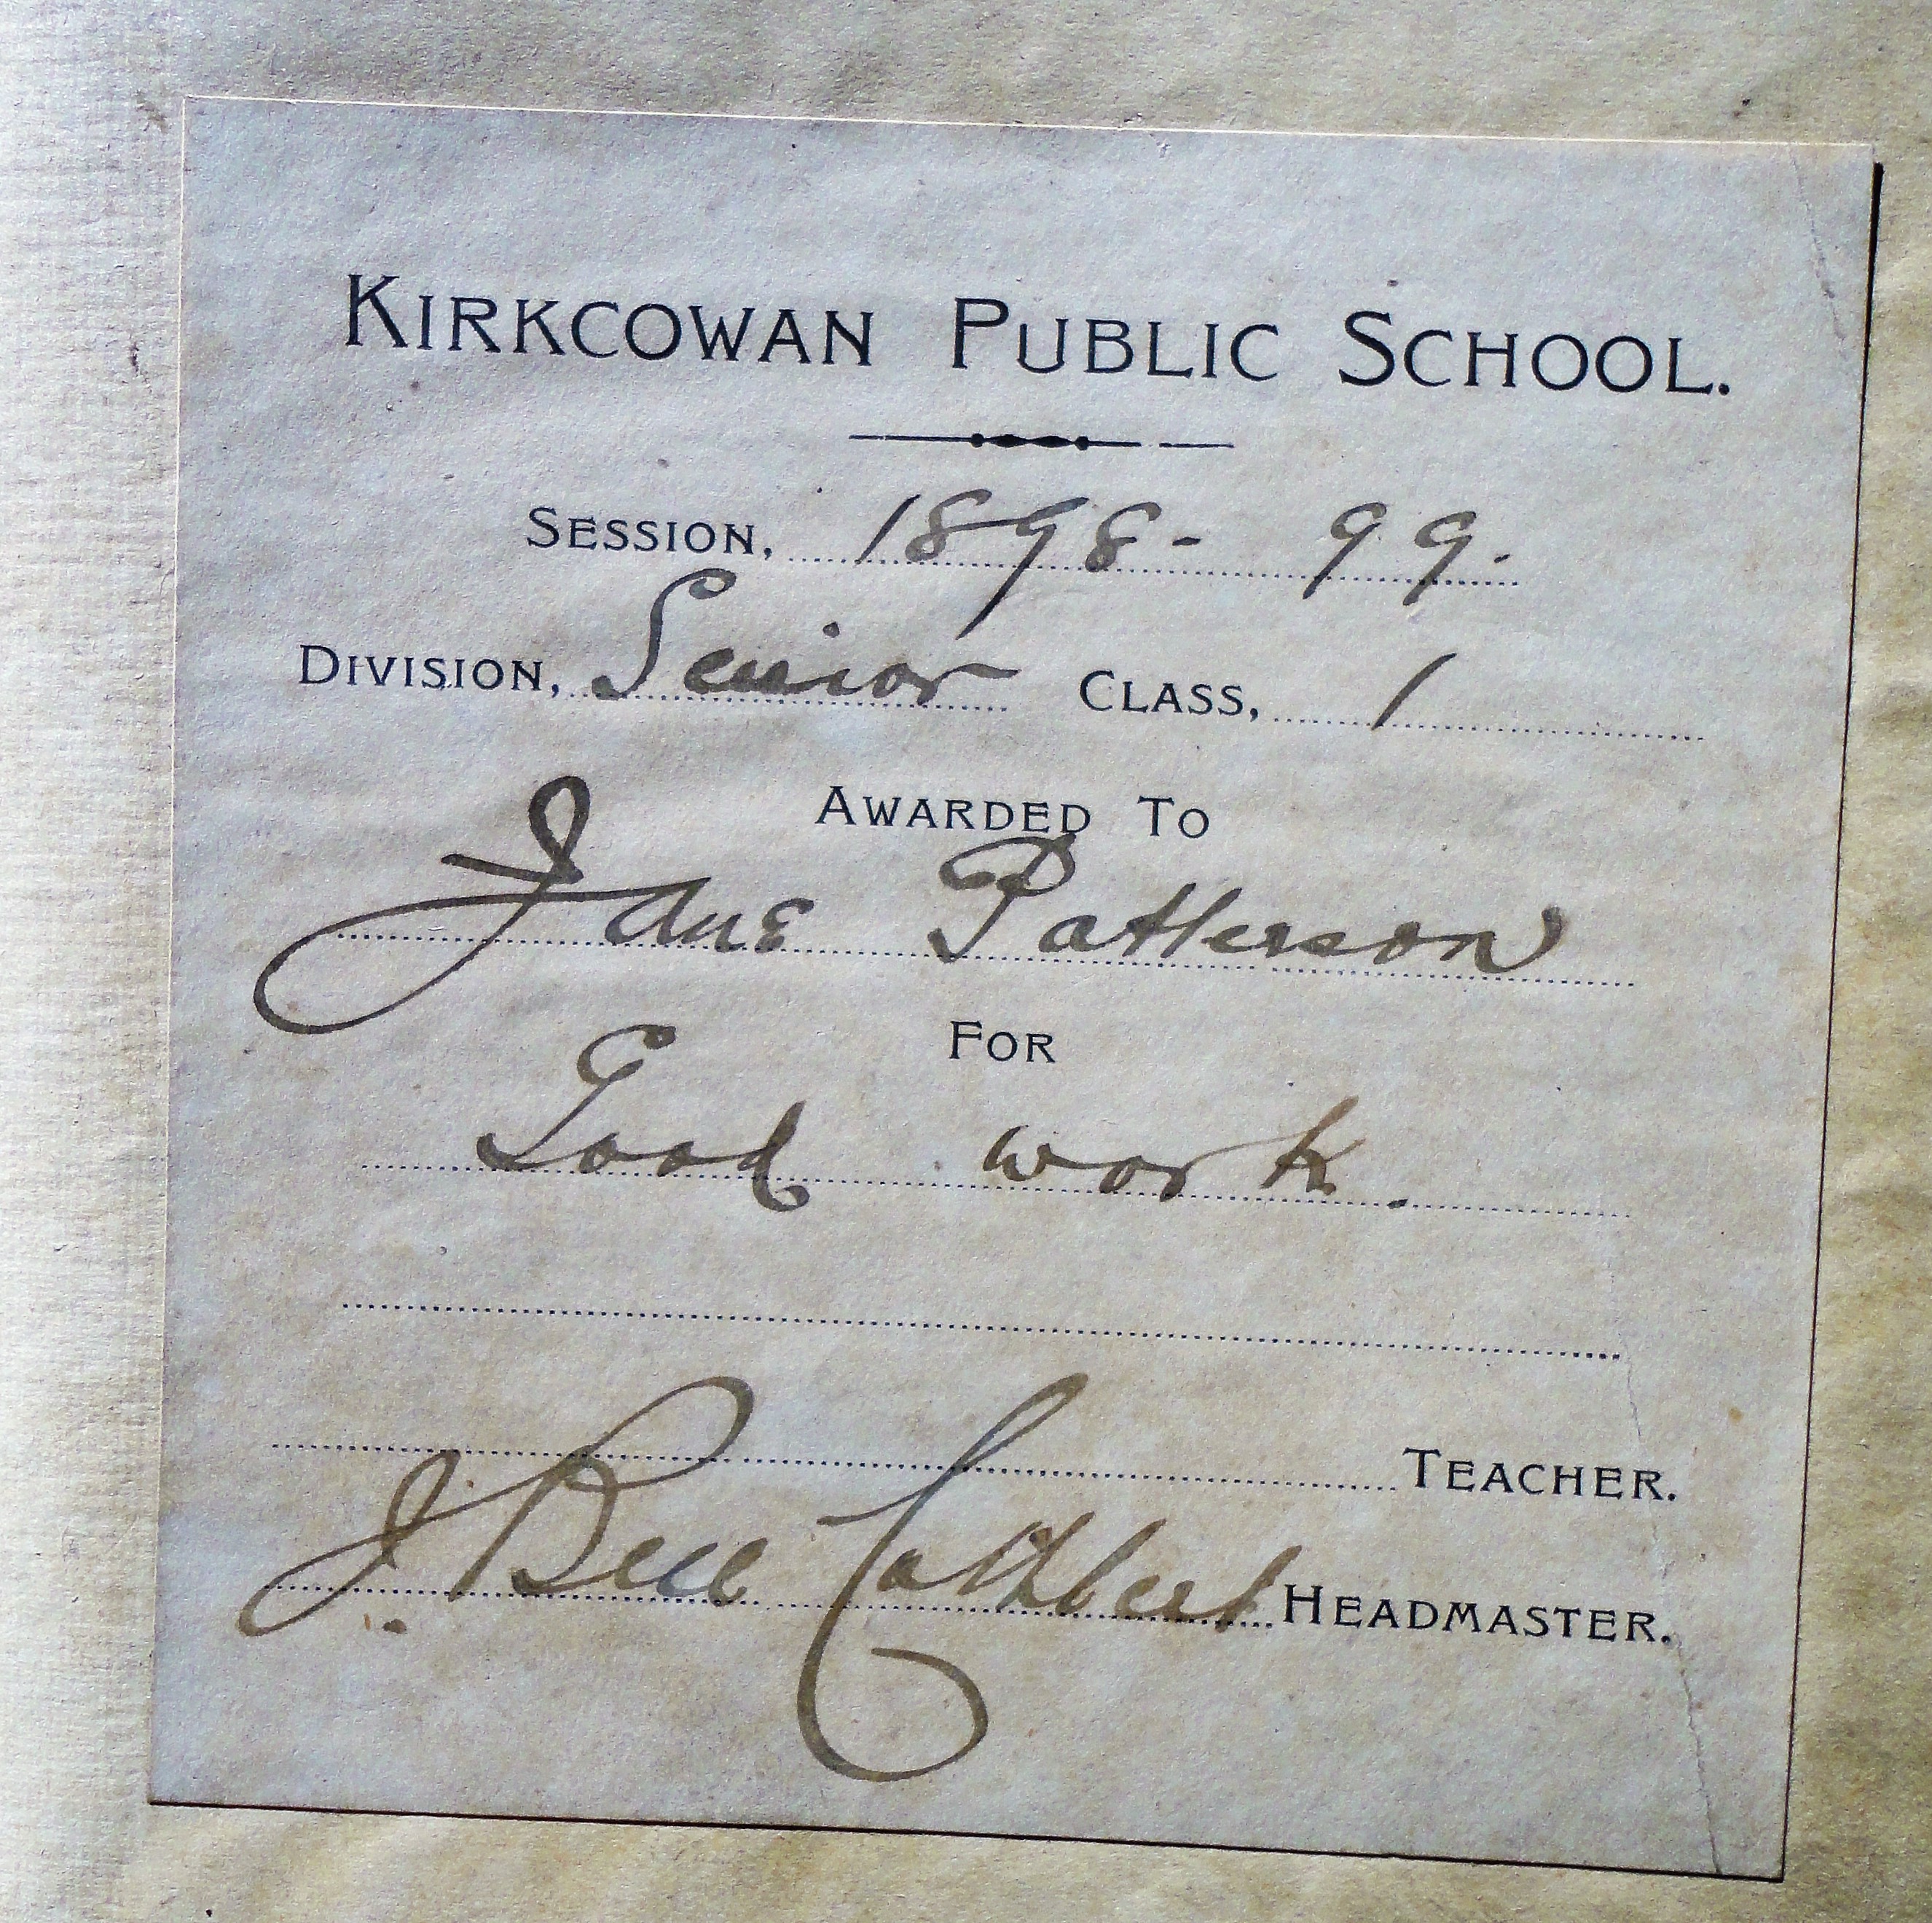 KIRKCOWAN PUBLIC SCHOOL.
SESSION, 1898-99.
DIVISION, Senior CLASS, 1
AWARDED TO
Jane Patterson
FOR
Good work.
TEACHER.
J. Bell Cathbert HEADMASTER.